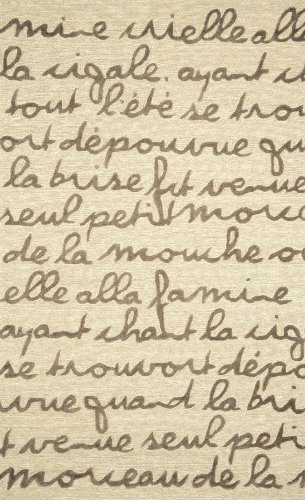 mine crielle alla
la cigale, ayant ch
tout l'été se trou
ort dépouvue qu
la brise fit venue
seul petit morce
de la mouche o
elle alla famine
ayant chant la cig
se trouvort dépo
uvue quand la bri
t venue seul peti
morceau de la